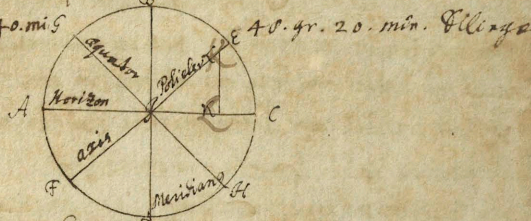 40. mi. G
48. gr. 20. min.
E
æquator
Polielev
A
Horizon
K
C
axis
F
Meridian
H